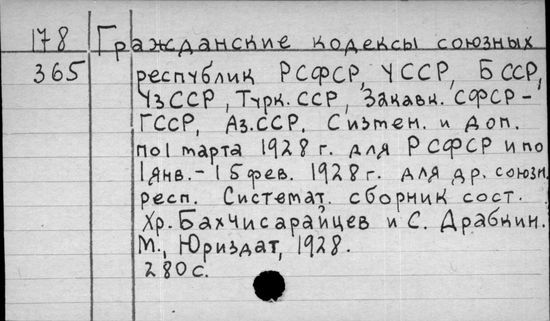 178 Гражданские кодексы союзных
365 республик РСФСР, УССР, БССР,
УзССР, Турк.ССР, Закавк. СФСР -
ГССР, Аз.ССР. С изтен. и доп.
по 1 марта 1928 г. для РСФСР и по
1 янв. - 15 фев. 1928 г. для др. союзн.
респ. Системат. сборник сост.
Хр. Бахчисарайцев и С. Драбкин.
М., Юриздат, 1928.
280 с.